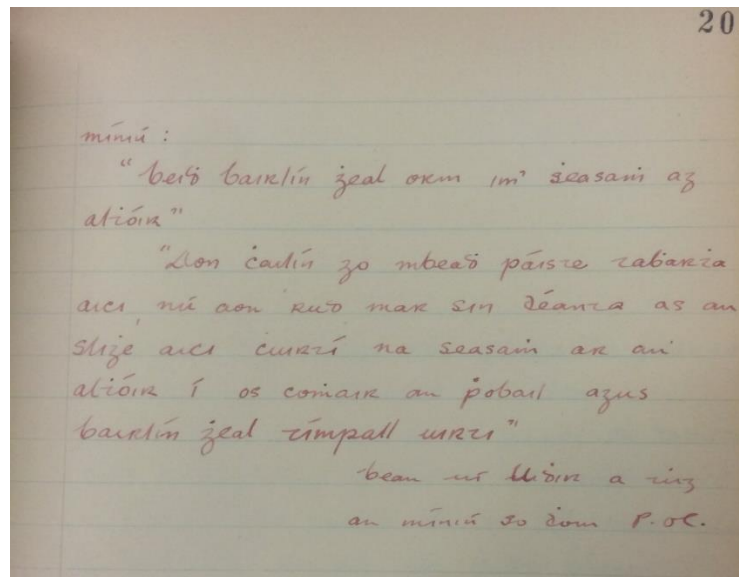 20
míniú :
"beiḋ bairlín ġeal orm im' ṡeasaṁ ag
altóir"
"Aon ċailín go mbeaḋ páiste tabarta
aici, nú aon ruḋ mar sin déanta as an
sliġe aici cuirtí na seasaṁ ar an
altóir í os coṁair an ṗobail agus
bairlín ġeal tímpall uirti"
bean uí a tug
an míniú so dom P. óC.